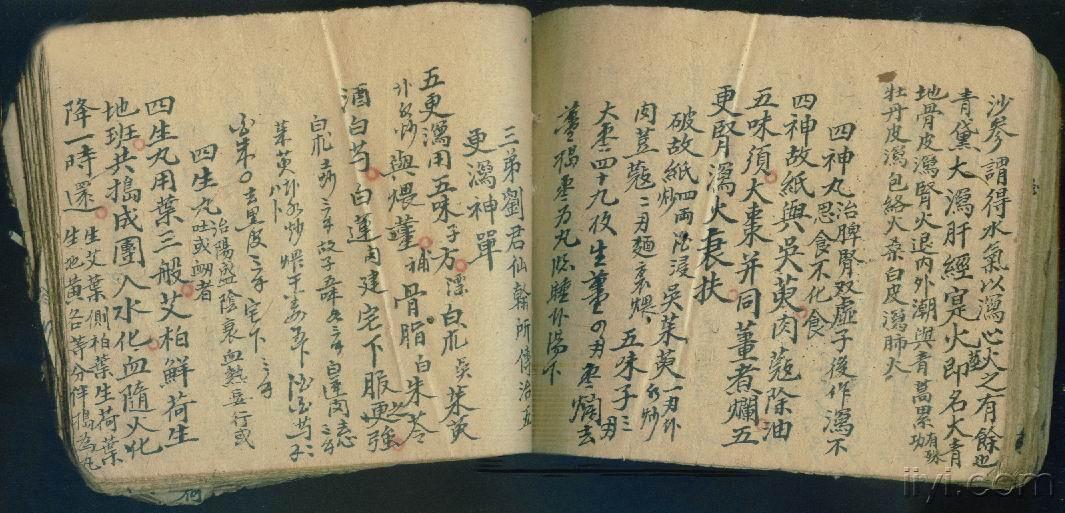 沙參謂得水氣以瀉心火之有餘也
青黛大瀉肝經寔火即名大青
地骨皮瀉腎火退內外潮與青蒿累有殊功
牡丹皮瀉包絡火桑白皮瀉肺火
四神丸治脾腎双虛子後作瀉不
思食不化食
四神故紙與吳萸肉蔻除油
五味須大棗并同薑煮爛五
更腎瀉火衰扶
破故紙四両酒浸吳茱萸一刄
肉荳蔻二刄麵裹煨五味子三刄
大棗四十九枚生薑四刄棗爛去
薑搗棗为丸臨睡湯下
三弟劉君仙翰所傳治五
更瀉神單
五更瀉用五味子方漂白朮吳茱萸
炒與煨薑補骨脂白朱苓
酒白芍白蓮肉建宅下服之更強
白朮故子白蓮肉
茱萸炒煨干姜酒白芍
去黑皮宅下
四生丸治陽盛陰衰血熱妄行或
吐或衄者
四生丸用葉三般艾柏鮮荷生
地班共搗成團入水化血隨火化
降一時還生艾葉側柏葉生荷葉
生地黃各等分伴搗為丸
iiyi.com